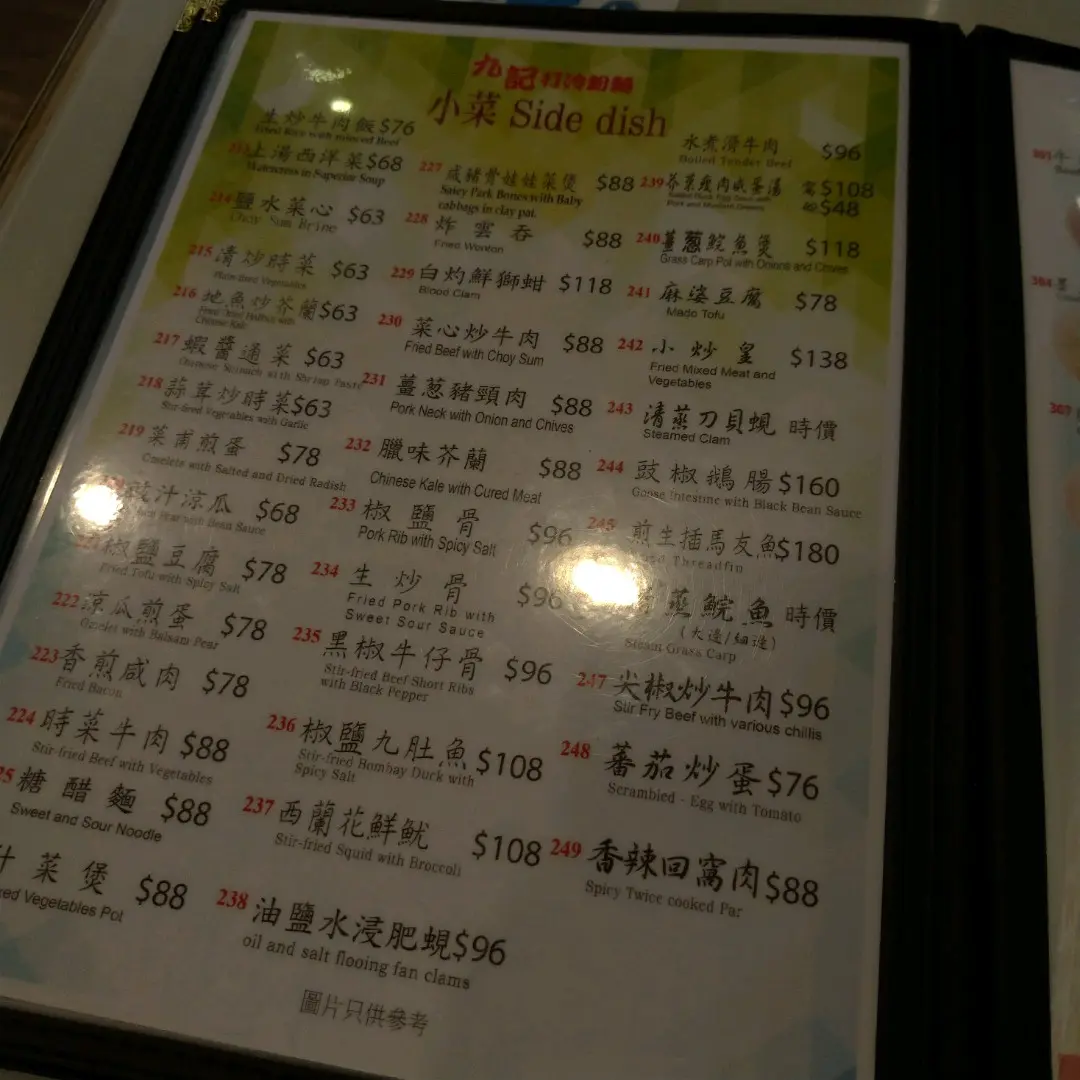 九記打冷粉麵
小菜 Side dish
生炒牛肉飯 $76
Fried Rice with minced Beef
上湯西洋菜 $68
Watercress in Superior Soup
214 鹽水菜心 $63
Choy Sum Brine
215 清炒時菜 $63
216 地魚炒芥蘭 $63
Chinese Kale
217 蝦醬通菜 $63
Chinese Spinach with Shrimp Paste
218 蒜茸炒時菜 $63
Stir-fired Vegetables with Garlic
219 菜甫煎蛋 $78
Omelets with Salted and Dried Radish
豉汁涼瓜 $68
with Bean Sauce
椒鹽豆腐 $78
Fried Tofu with Spicy Salt
222 涼瓜煎蛋 $78
Omelet with Balsam Pear
223 香煎咸肉 $78
Fried Bacon
224 時菜牛肉 $88
Stir-fried Beef with Vegetables
25 糖醋麵 $88
Sweet and Sour Noodle
汁菜煲 $88
xed Vegetables Pot
227 咸豬骨娃娃菜煲 $88
Saley Park Bones with Baby
cabbags in clay pat.
228 炸雲吞 $88
Fried Wonton
229 白灼鮮獅蚶 $118
Blood Clam
230 菜心炒牛肉 $88
Fried Beef with Choy Sum
231 薑蔥豬頸肉 $88
Pork Neck with Onion and Chives
232 臘味芥蘭 $88
Chinese Kale with Cured Meat
233 椒鹽骨 $96
Pork Rib with Spicy Salt
234 生炒骨 $96
Fried Pork Rib with
Sweet Sour Sauce
235 黑椒牛仔骨 $96
Stir-fried Beef Short Ribs
with Black Pepper
236 椒鹽九肚魚 $108
Stir-fried Bombay Duck with
Spicy Salt
237 西蘭花鮮魷 $108
Stir-fried Squid with Broccoli
238 油鹽水浸肥蜆 $96
oil and salt flooing fan clams
水煮滑牛肉 $96
Boiled Tender Beef
239 芥菜瘦肉咸蛋湯 窩 $108
$48
Pork and Mustard Greens
240 薑蔥鯇魚煲 $118
Grass Carp Pot with Onions and Chives
241 麻婆豆腐 $78
Mado Tofu
242 小炒皇 $138
Fried Mixed Meat and
Vegetables
243 清蒸刀貝蜆 時價
Steamed Clam
244 豉椒鵝腸 $160
Goose Intestine with Black Bean Sauce
245 煎生插馬友魚 $180
Threadfin
蒸鯇魚 時價
(大邊/細邊)
Steam Grass Carp
247 尖椒炒牛肉 $96
Stir Fry Beef with various chillis
248 蕃茄炒蛋 $76
Scrambled - Egg with Tomato
249 香辣回窩肉 $88
Spicy Twice cooked Par
圖片只供參考
301 牛
304
307